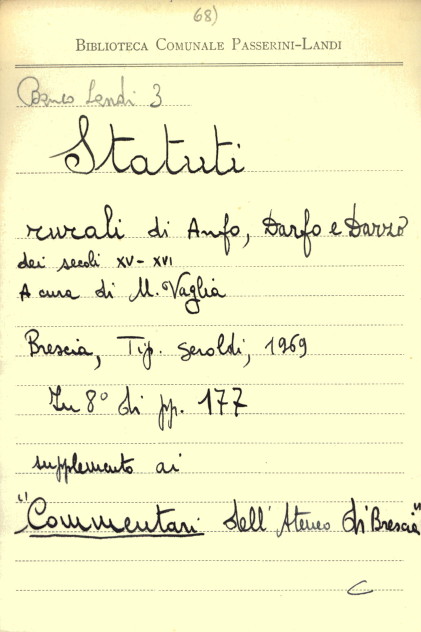 68)
BIBLIOTECA COMUNALE PASSERINI-LANDI
Banco Landi 3
Statuti
rurali di Anfo, Darfo e Darzo
dei secoli XV-XVI
A cura di U. Vaglia
Brescia, Tip. Geroldi, 1969
In 8° di pp. 177
supplemento ai
"Commentari dell'Ateneo di Brescia"
C